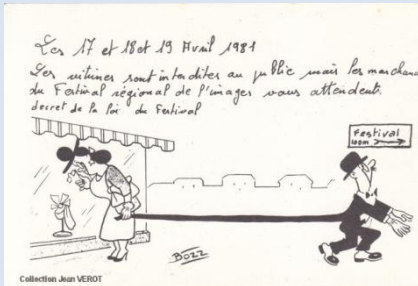 Les 17 et 18 et 19 Avril 1981
Les vitrines sont interdites au public mais les marchands
du Festival régional de l'images vous attendent.
decret de la loi du Festival
Festival
BOZZ
Collection Jean VEROT